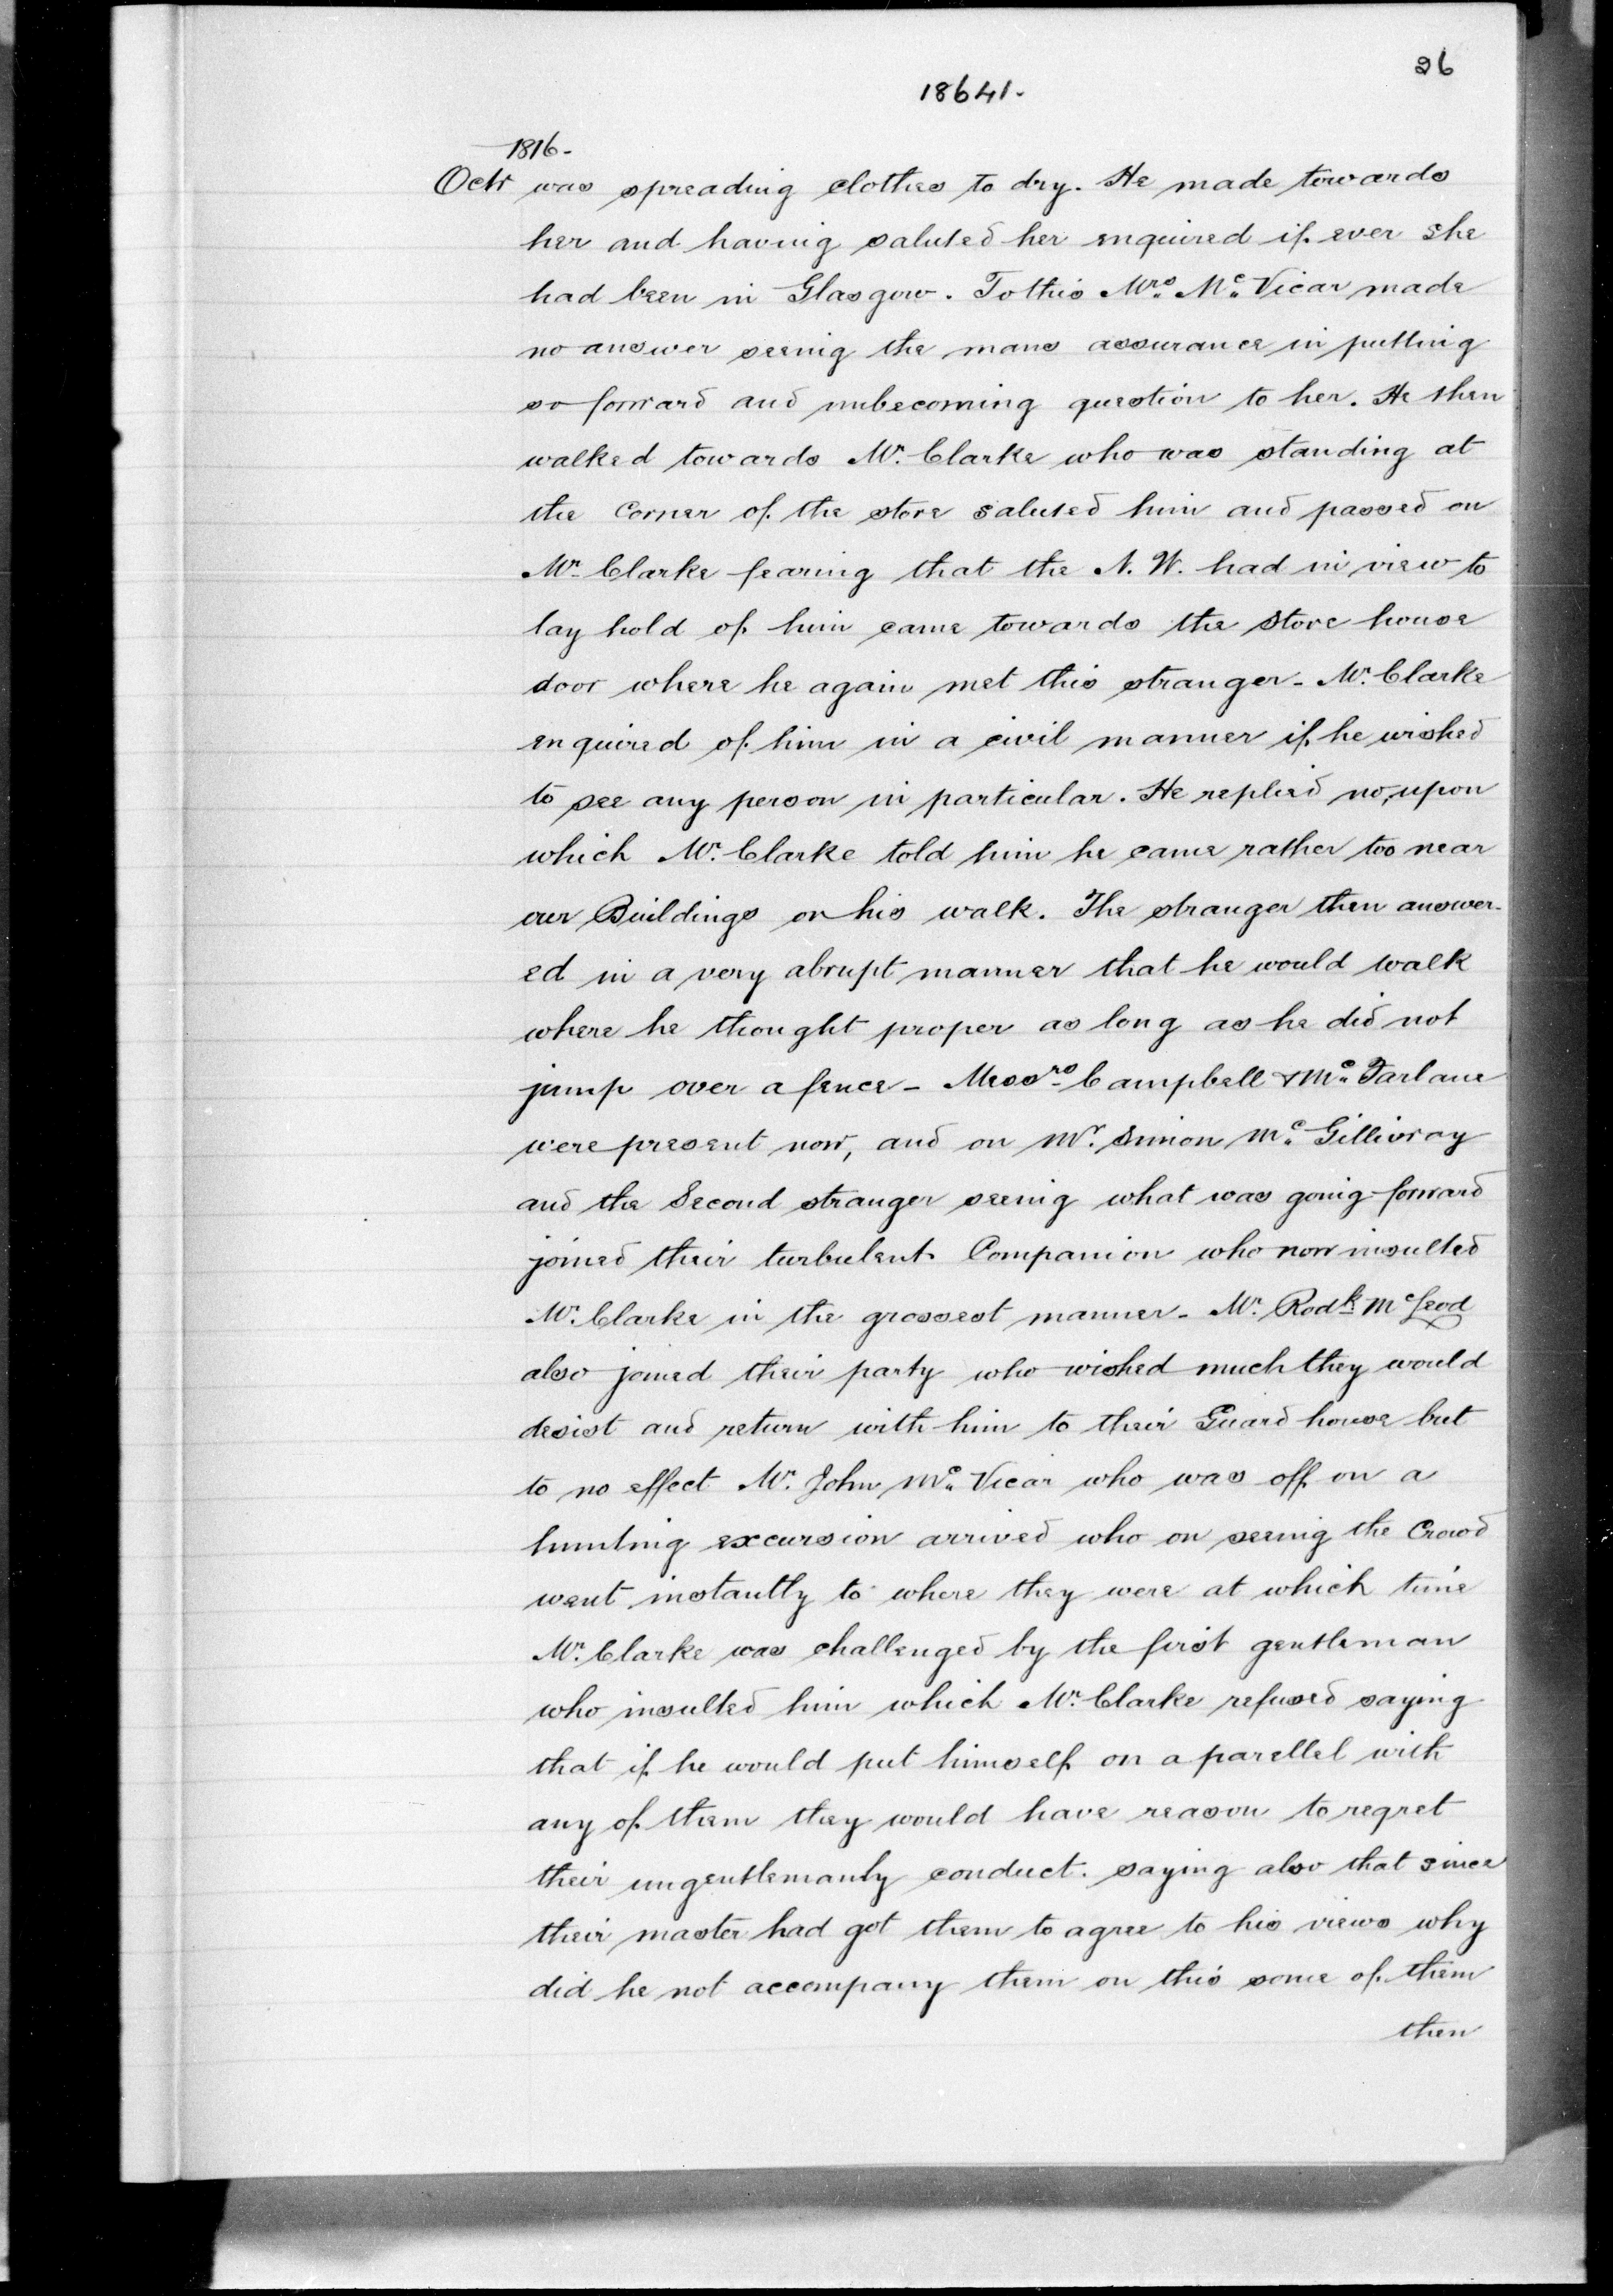 26
18641.
1816.
Octr was spreading clothes to dry. He made towards
her and having saluted her enquired if ever she
had been in Glasgow. To this Mrs. Mc. Vicar made
no answer seeing the mans assurance in putting
so forward and unbecoming question to her. He then
walked towards Mr. Clarke who was standing at
the Corner of the store saluted him and passed on
Mr. Clarke fearing that the N. W. had in view to
lay hold of him came towards the Store house
door where he again met this stranger - Mr. Clarke
enquired of him in a civil manner if he wished
to see any person in particular. He replied no, upon
which Mr. Clarke told him he came rather too near
our Buildings on his walk. The stranger then answer-
ed in a very abrupt manner that he would walk
where he thought proper as long as he did not
jump over a fence - Messrs. Campbell & Mc. Farlane
were present now, and on Mr. Simon Mc. Gillivray
and the Second stranger seeing what was going forward
joined their turbulent Companion who now insulted
Mr. Clarke in the grossest manner - Mr. Rodk. McLeod
also joined their party who wished much they would
desist and return with him to their Guard house but
to no effect Mr. John Mc. Vicar who was off on a
hunting excursion arrived who on seeing the Crowd
went instantly to where they were at which time
Mr. Clarke was challenged by the first gentleman
who insulted him which Mr. Clarke refused saying
that if he would put himself on a parellel with
any of them they would have reason to regret
their ungentlemanly conduct. saying also that since
their master had got them to agree to his views why
did he not accompany them on this some of them
then